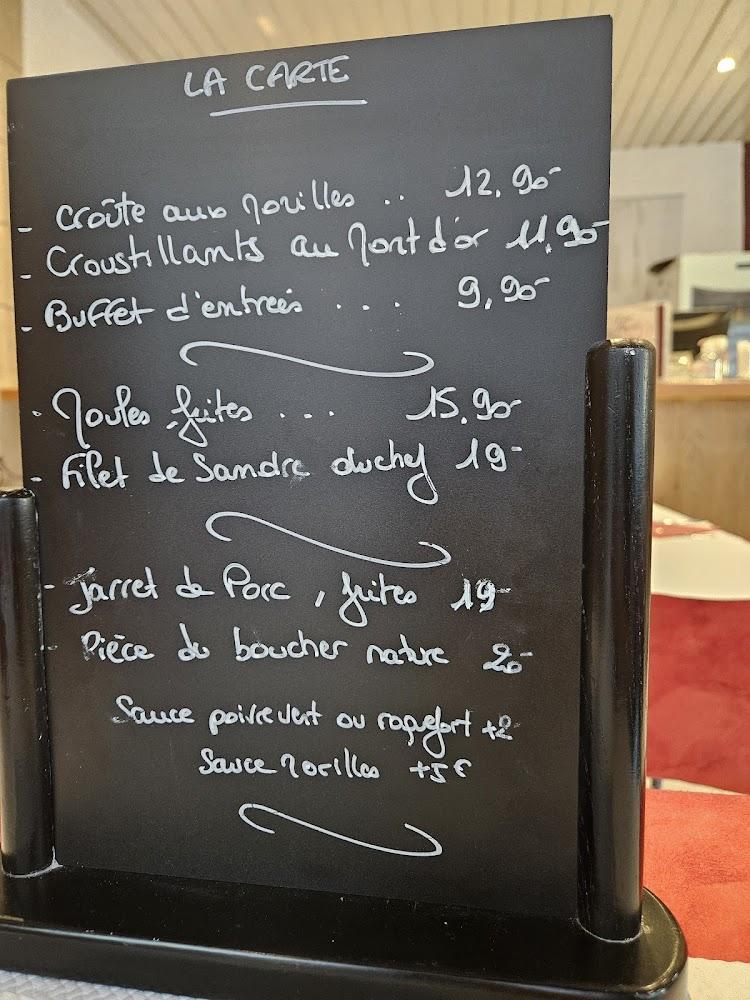 LA CARTE
- Croûte aux Morilles .. 12,90-
- Croustillants au Mont d'or 11,90-
- Buffet d'entrées ... 9,90-
- Moules frites ... 15,90-
- Filet de Sandre du chef 19-
- Jarret de Porc, frites 19-
- Pièce du boucher nature 20-
Sauce poivre vert ou roquefort +2
Sauce Morilles +5€